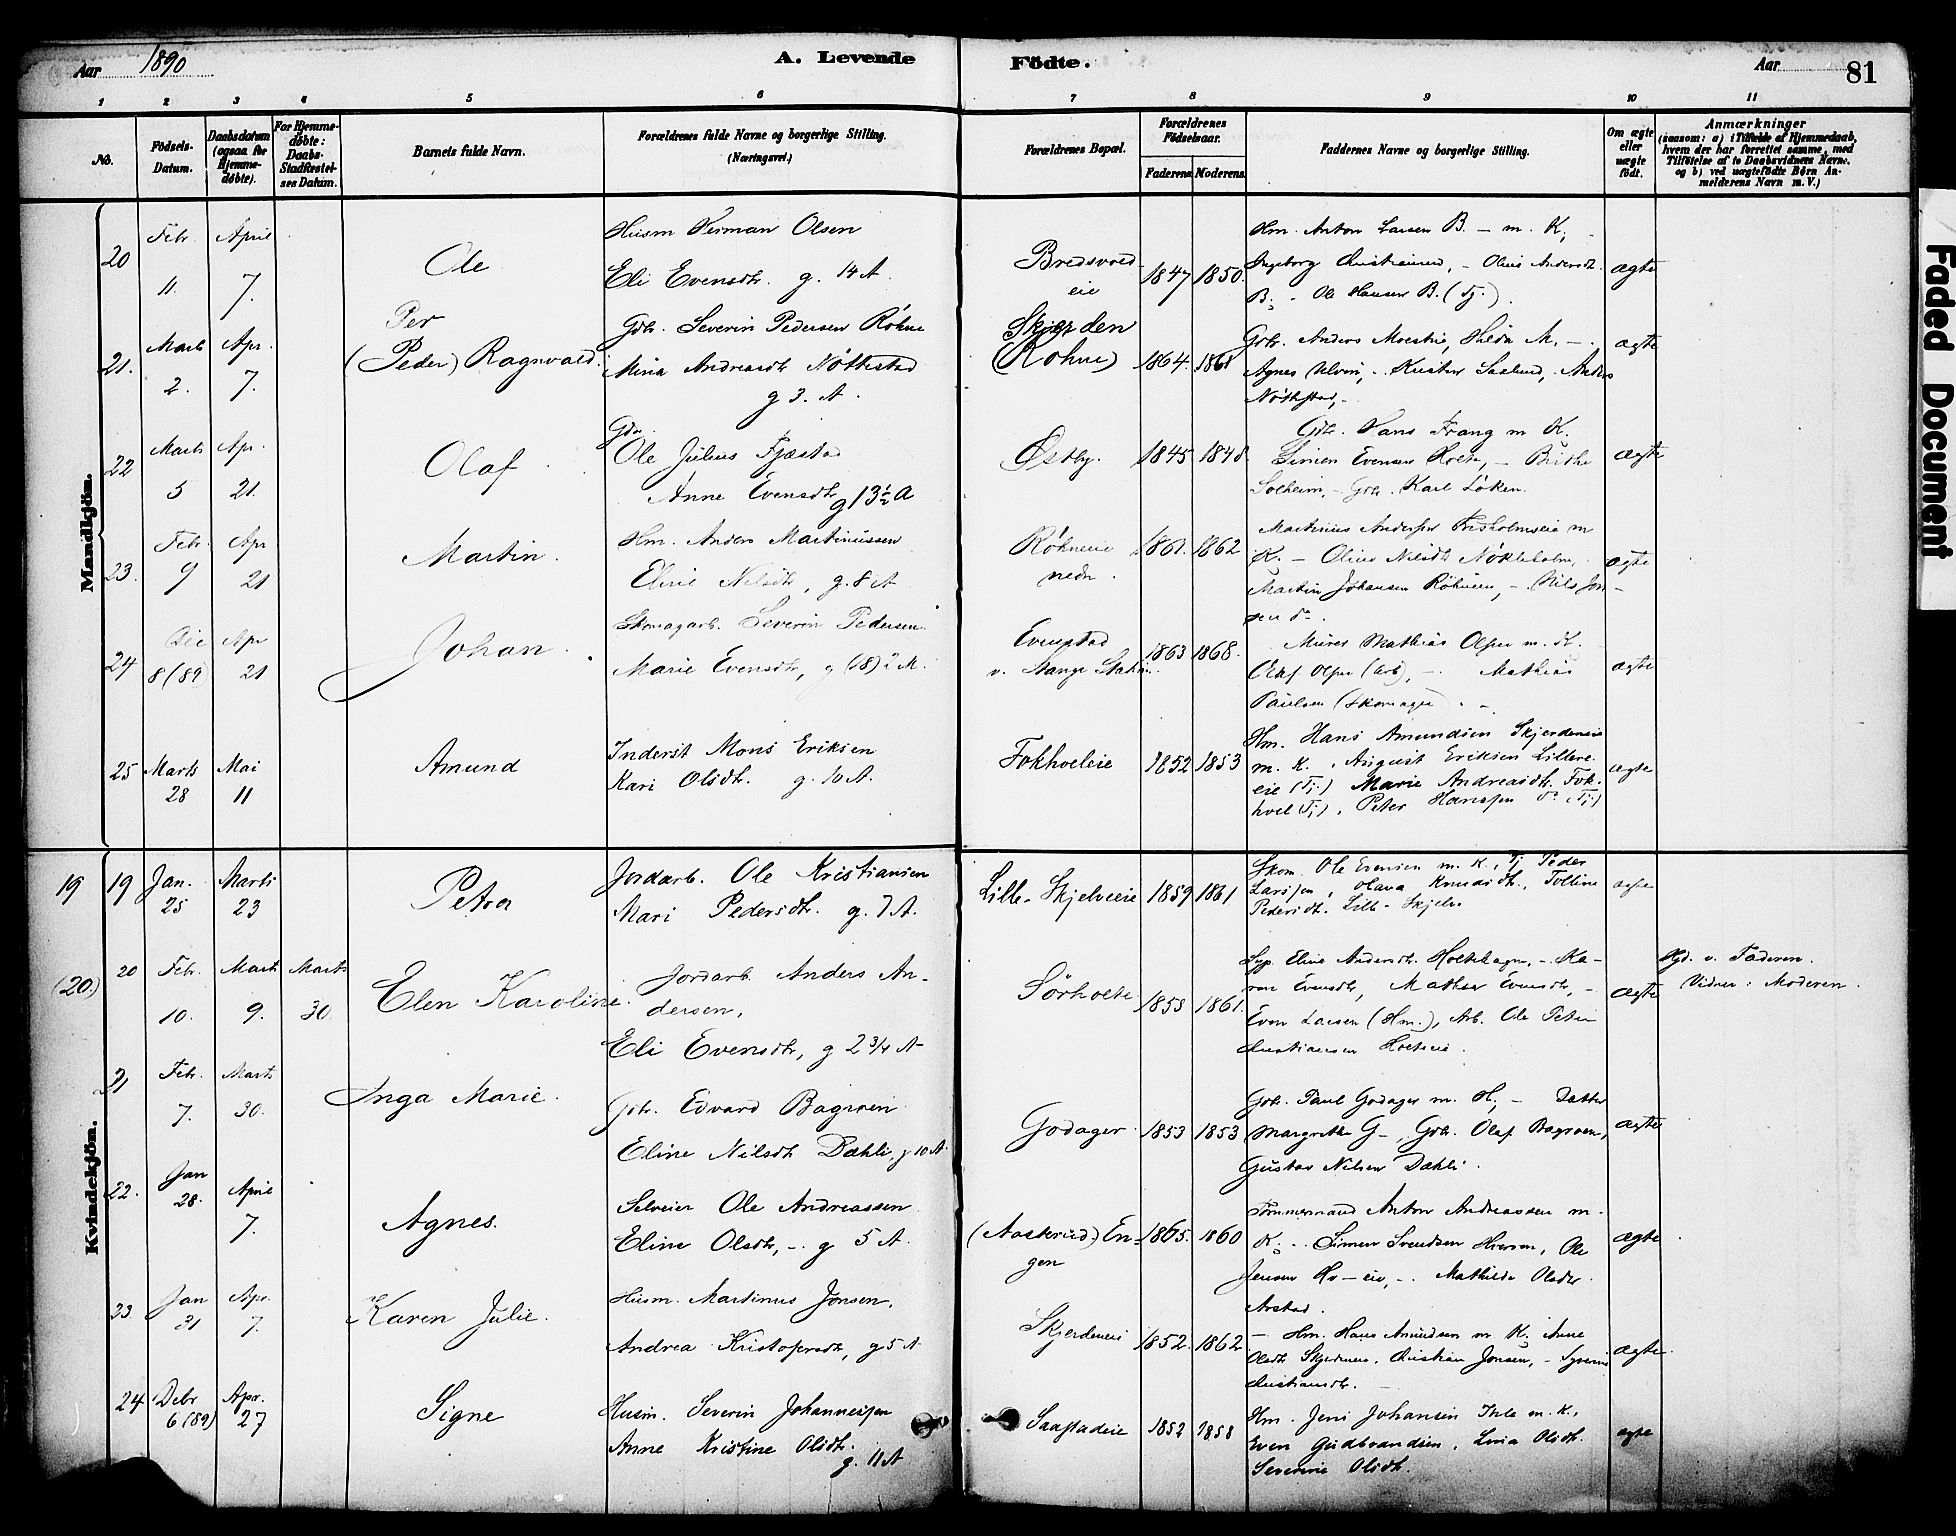 Aar 1890
A. Levende
Födte.
Aar
81
1 2 3 4 5 6 7 8 9 10 11
No.
Födsels-Datum.
Daabsdatum (ogsaa for Hjemme-døbte).
For Hjemme-døbte: Daabs-Stadfæstel-ses Datum.
Barnets fulde Navn.
Forældrenes fulde Navne og borgerlige Stilling. (Næringsvei.)
Forældrenes Bopæl.
Forældrenes Födselsaar.
Faderens. Moderens.
Faddernes Navne og borgerlige Stilling.
Om ægte eller uægte født.
Anmærkninger
(saasom: a) i Tilfælde af Hjemmedaab,
hvem der har forrettet samme, med
Tilföielse af to Daabsvidners Navne,
og b) ved uægtefødte Börn An-
melderens Navn m. V.)
Mandkjön.
20 Febr 11. April 7.
Ole
Husm Herman Olsen
Eli Evensdtr. g. 14 A.
Bredsvold eie
1847 1850.
Hm. Anton Larsen B. - m. K;
Ingeborg - Oline Andersdtr.
B; - Ole Hansen B. (Tj.)
ægte
21. Marts 2. Apr. 7.
Per
(Peder) Ragnvald.
Gdbr. Severin Pedersen Röhne
Mina Andreasdtr Nöttestad
g 3. A.
Skjerden
(Röhne)
1864. 1861
Gdbr. Anders M. - .
Agnes Ulven, - Saxlund, Anders
Nöttestad, -
ægte
22 Marts 5 Apr. 21.
Olaf
Gdr.
Ole Julius Fjæstad
Anne Evensdtr g 13 1/2 A
Østby.
1845 1848.
Gdb. Hans Frang m K.
Simen Evensen Holte, -
Solheim, - Gdr. Karl Löken.
ægte
23. Febr. 9 Apr 21
Martin.
Hm. Anders Martinussen
Eline Nilsdtr, g. 8 A
Röhneeie
nedr.
1861. 1862
Martinus Andersen m
K. - Oline Nilsdtr
Martin Johansen Röhneeie, - Nils Jon-
sen do.
ægte
24 Dec 8 (89) Apr 21
Johan.
Skomagerarb. Severin Pedersen.
Marie Evensdtr, g (18) 2 M.
Evenstad
v. Stange Station.
1863 1868.
Murer Mathias Olsen m. K.
Olaf Olsen (Arb), - Mathias
Paulsen (Skomager) . -
ægte
25 Marts 28 Mai 11
Amund
Inderst Mons Eriksen
Kari Olsdtr. g. 10 A.
Fokholeie
1852 1853
Hm. Hans Amundsen Skjerdeneie
m. K. , August Eriksen Lillere
eie (Tj.) Marie Andreasdtr. Fok-
hoel (Tj), Peter Hanssen do (Tj.)
ægte
Kvindekjön.
19 19 Jan. 25 Marts 23
Petra
Jordarb. Ole Kristiansen
Mari Pedersdtr. g. 7 A.
Lille-Skjelveeie
1859 1861
Skom. Ole Evensen m. K., Tj Peder
Larssen, Olava Knudsdtr., Tolline
Pedersdtr. Lille-Skjelv.
ægte
(20.) 20 Febr. 10. Marts 9. Marts 30.
Elen Karoline.
Jordarb. Anders An-
dersen,
Eli Evensdtr, g 2 3/4 A
Sörholte
1858 1861.
Eline Andersdtr. Holtehagen, - Ka-
ren Evensdtr, Mathea Evensdtr, -
Even Larsen (Hm.), Arb. Ole Peter
Christiansen Holteeie.
ægte
Hjd. v. Faderen.
Vidner: Moderen.
21 Febr. 7. Marts 30.
Inga Marie.
Gdbr. Edvard Bagroen
Eline Nilsdtr Dæhli, g 10 A.
Godager.
1853 1853
Gdbr. Paul Godager m. H; - Datter
Margrethe G-, Gdbr. Olaf Bagroen,
Gustav Nilsen Dæhli.
ægte
22. Jan 28. April 7.
Agnes.
Selveier Ole Andreassen
Eline Olsdtr, -. g 5 A.
(Aaskrud) En-
gen
1865. 1860
Tömmermand Anton Andreassen m.
K; - Simen Svendsen , Ole
Jensen -eie, -. Mathilde Olsdtr.
Arstad.
ægte
23. Jan 31 Apr. 7.
Karen Julie.
Husm. Martinus Jonsen,
Andrea Kristofersdtr, g 5 A
Skjerdeneie
1852. 1862
- Hm. Hans Amundsen m K; Anne
Olsdtr Skjerdeneie. Christian Jonsen, -
Christiansdtr.
ægte.
24 Debr 6 (89) Apr. 27
Signe
Husm. Severin Johannessen
Anne Kristine Olsdtr.
g. 11 A
Saastadeie
1852 1858
Hm. Jens Johansen Ihle m. K.,
Even Gudbrandsen, Lina Olsdtr.
Severine Olsdtr.
ægte
Faded Document